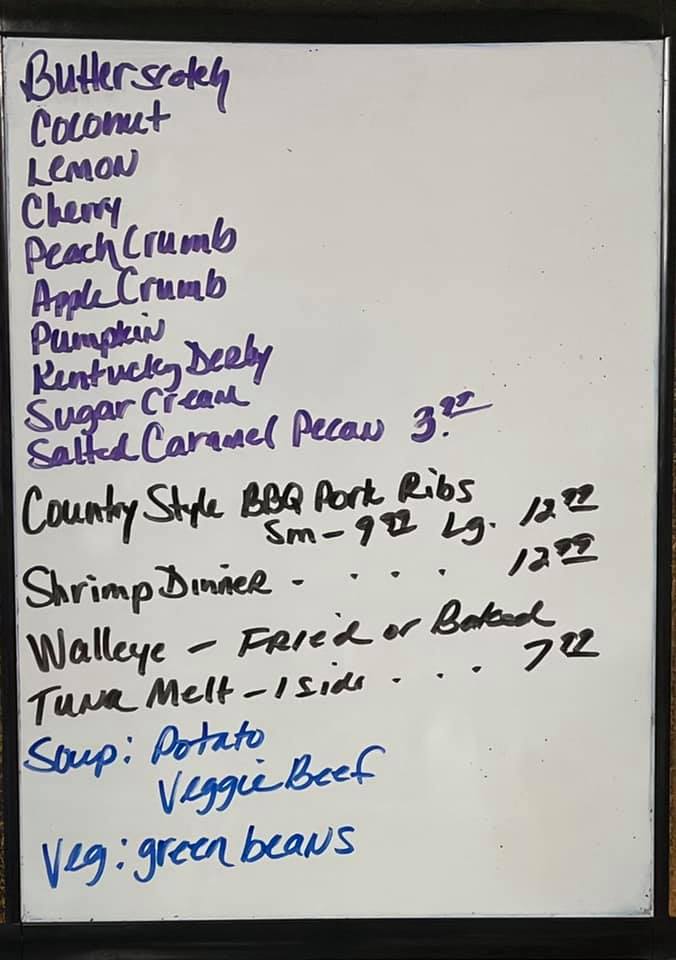 Butterscotch
Coconut
Lemon
Cherry
Peach Crumb
Apple Crumb
Pumpkin
Kentucky Derby
Sugar Cream
Salted Caramel Pecan 3.99
Country Style BBQ Pork Ribs
Sm - 9.99 Lg. 12.99
Shrimp Dinner - . . . . 12.99
Walleye - Fried or Baked
Tuna Melt - 1 side . . . 7.99
Soup: Potato
Veggie Beef
Veg: green beans